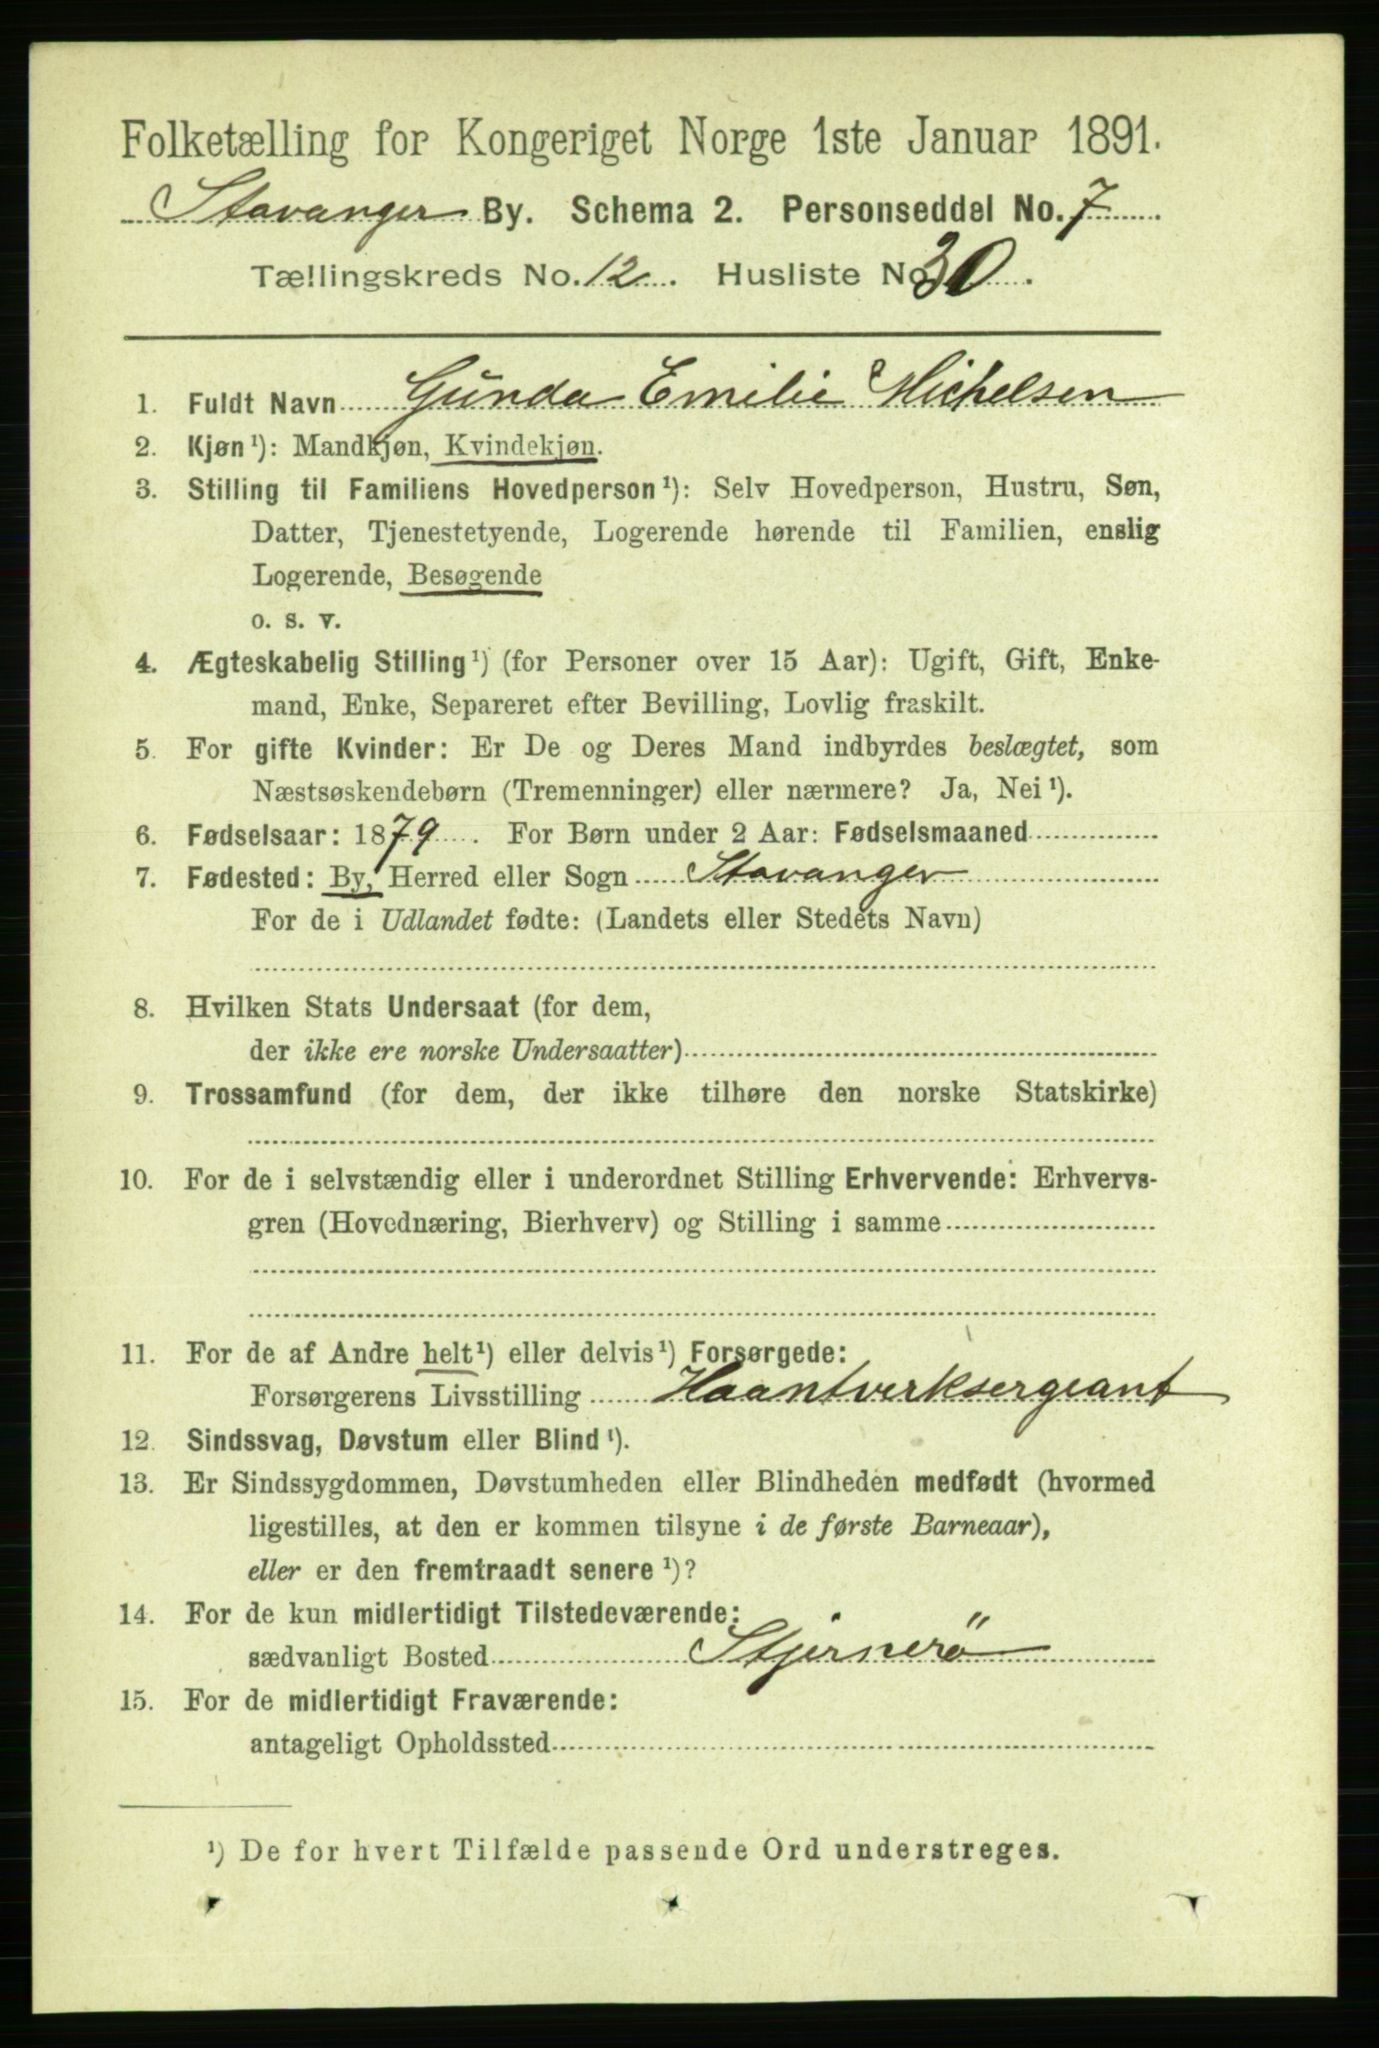 Folketælling for Kongeriget Norge 1ste Januar 1891.
Stavanger By. Schema 2. Personseddel No. 7
Tællingskreds No. 12. Husliste No. 30.
1. Fuldt Navn Gunda Emilie Michelsen
2. Kjøn¹): Mandkjøn, Kvindekjøn.
3. Stilling til Familiens Hovedperson¹): Selv Hovedperson, Hustru, Søn,
Datter, Tjenestetyende, Logerende hørende til Familien, enslig
Logerende, Besøgende
o. s. v.
4. Ægteskabelig Stilling¹) (for Personer over 15 Aar): Ugift, Gift, Enke-
mand, Enke, Separeret efter Bevilling, Lovlig fraskilt.
5. For gifte Kvinder: Er De og Deres Mand indbyrdes beslægtet, som
Næstsøskendebørn (Tremenninger) eller nærmere? Ja, Nei¹).
6. Fødselsaar: 1879. For Børn under 2 Aar: Fødselsmaaned
7. Fødested: By, Herred eller Sogn Stavanger
For de i Udlandet fødte: (Landets eller Stedets Navn)
8. Hvilken Stats Undersaat (for dem,
der ikke ere norske Undersaatter)
9. Trossamfund (for dem, der ikke tilhøre den norske Statskirke)
10. For de i selvstændig eller i underordnet Stilling Erhvervende: Erhvervs-
gren (Hovednæring, Bierhverv) og Stilling i samme
11. For de af Andre helt¹) eller delvis¹) Forsørgede:
Forsørgerens Livsstilling Haantverksergeant
12. Sindssvag, Døvstum eller Blind¹).
13. Er Sindssygdommen, Døvstumheden eller Blindheden medfødt (hvormed
ligestilles, at den er kommen tilsyne i de første Barneaar),
eller er den fremtraadt senere¹)?
14. For de kun midlertidigt Tilstedeværende:
sædvanligt Bosted Stjernerö
15. For de midlertidigt Fraværende:
antageligt Opholdssted
¹) De for hvert Tilfælde passende Ord understreges.